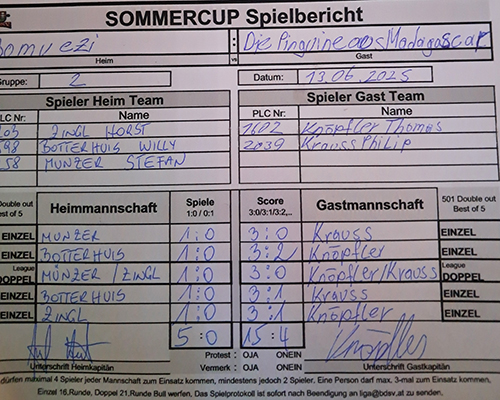 SOMMERCUP Spielbericht
: Die Pinguine aus Madagascar
Heim vs Gast
Gruppe: 2 Datum: 13.06.2025
Spieler Heim Team Spieler Gast Team
PLC Nr: Name PLC Nr: Name
ZINGL HORST 1602 Knöpfler Thomas
BOTTERHUIS WILLY 2039 Krauss Philip
58 MUNZER STEFAN
Double out Best of 5 Heimmannschaft Spiele 1:0 / 0:1 Score 3:0/3:1/3:2,.. Gastmannschaft 501 Double out Best of 5
EINZEL MUNZER 1:0 3:0 Krauss EINZEL
EINZEL BOTTERHUIS 1:0 3:2 Knöpfler EINZEL
League DOPPEL MUNZER / ZINGL 1:0 3:0 Knöpfler/Krauss League DOPPEL
EINZEL BOTTERHUIS 1:0 3:1 Krauss EINZEL
EINZEL ZINGL 1:0 3:1 Knöpfler EINZEL
5:0 15:4 Knöpfler
Protest : OJA ONEIN
Unterschrift Heimkapitän Vermerk : OJA ONEIN Unterschrift Gastkapitän
dürfen maximal 4 Spieler jeder Mannschaft zum Einsatz kommen, mindestens jedoch 2 Spieler. Eine Person darf max. 3-mal zum Einsatz kommen,
Einzel 16.Runde, Doppel 21.Runde Bull werfen. Das Spielprotokoll ist sofort nach Beendigung an liga@bdsv.at zu senden.